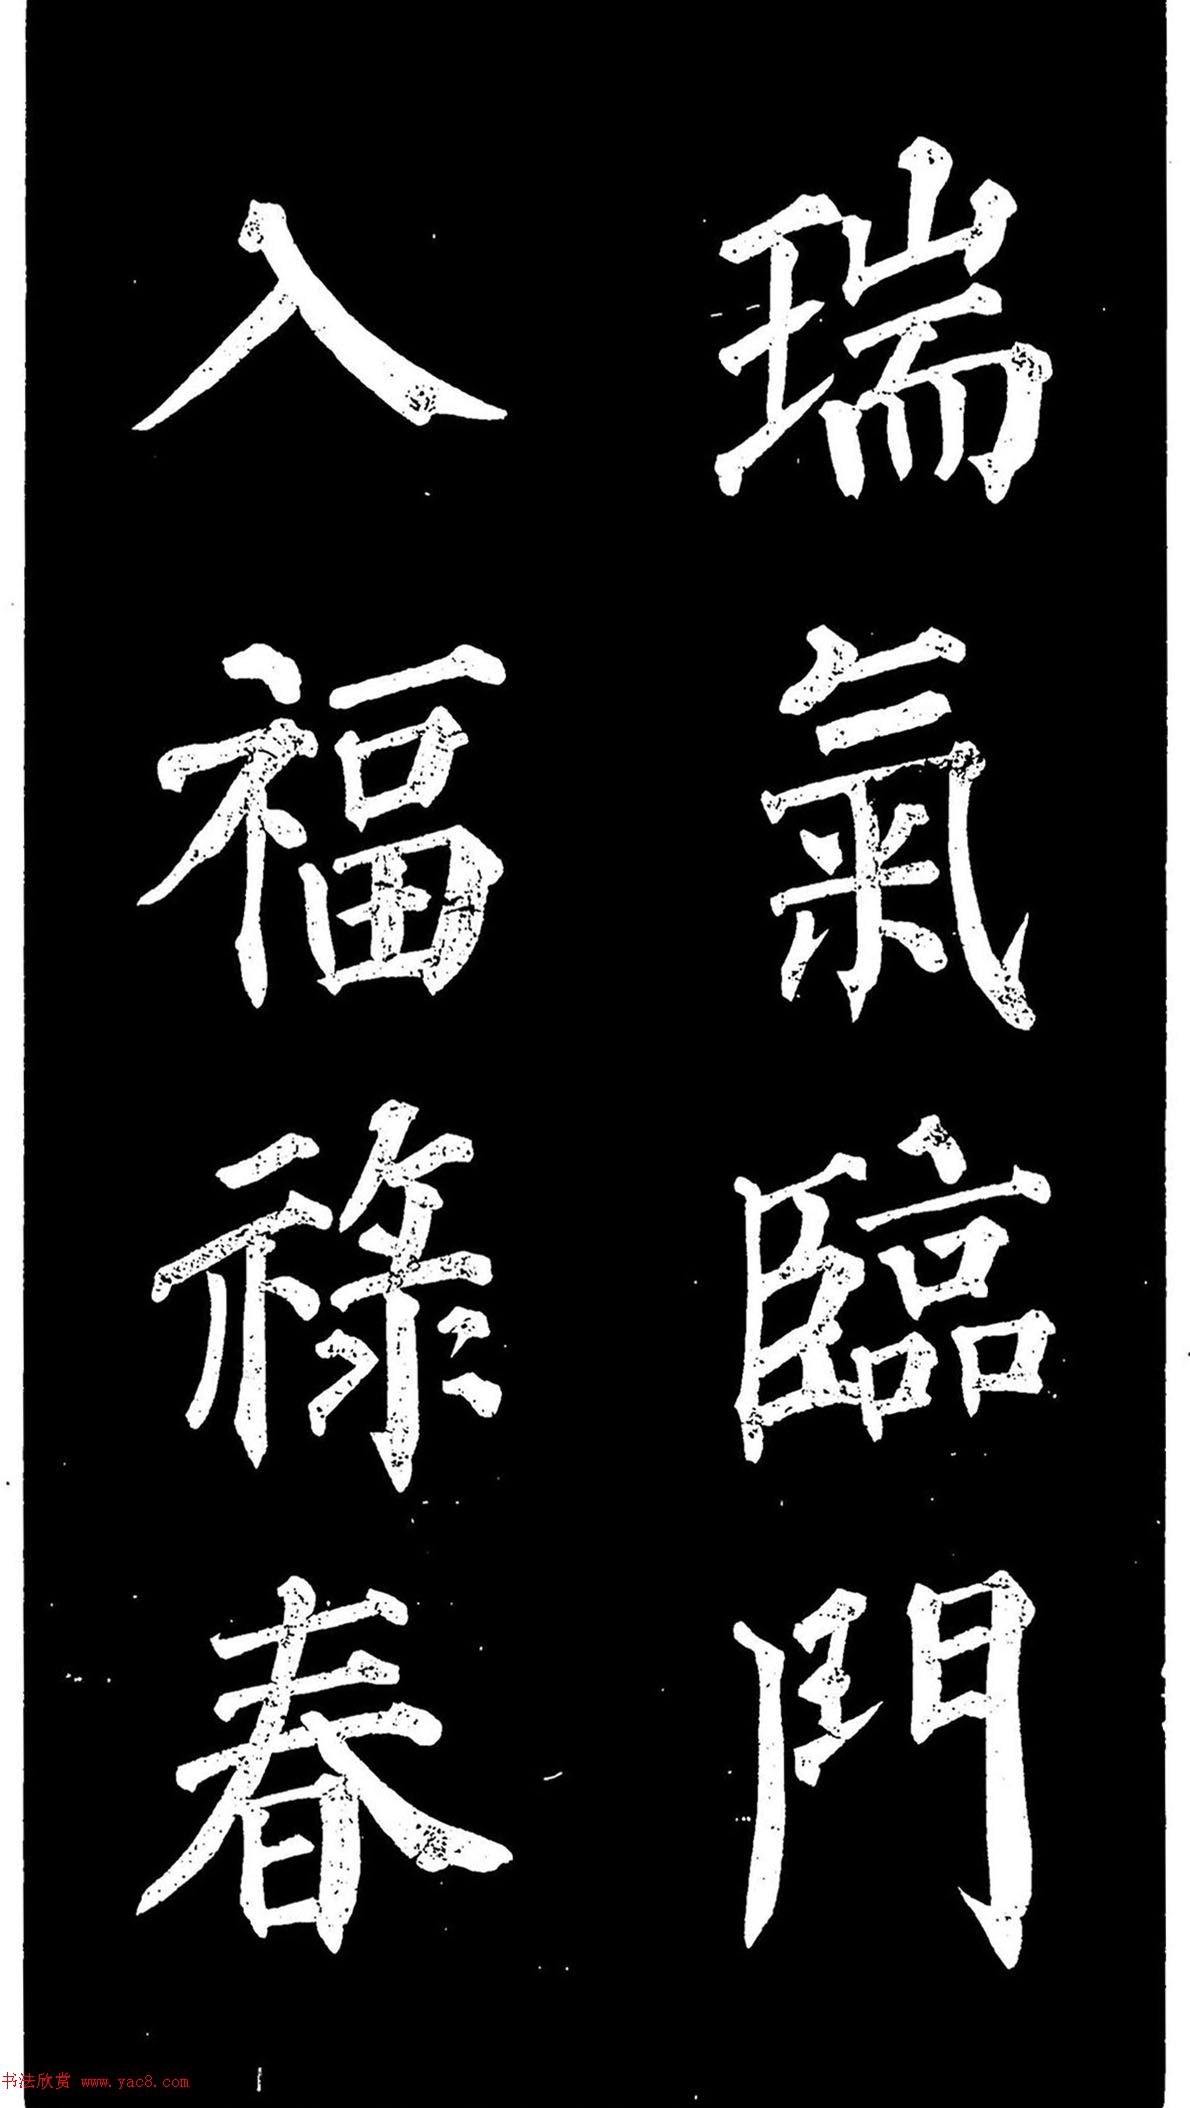 瑞氣臨門
入福祿春
书法欣赏 www.yac8.com